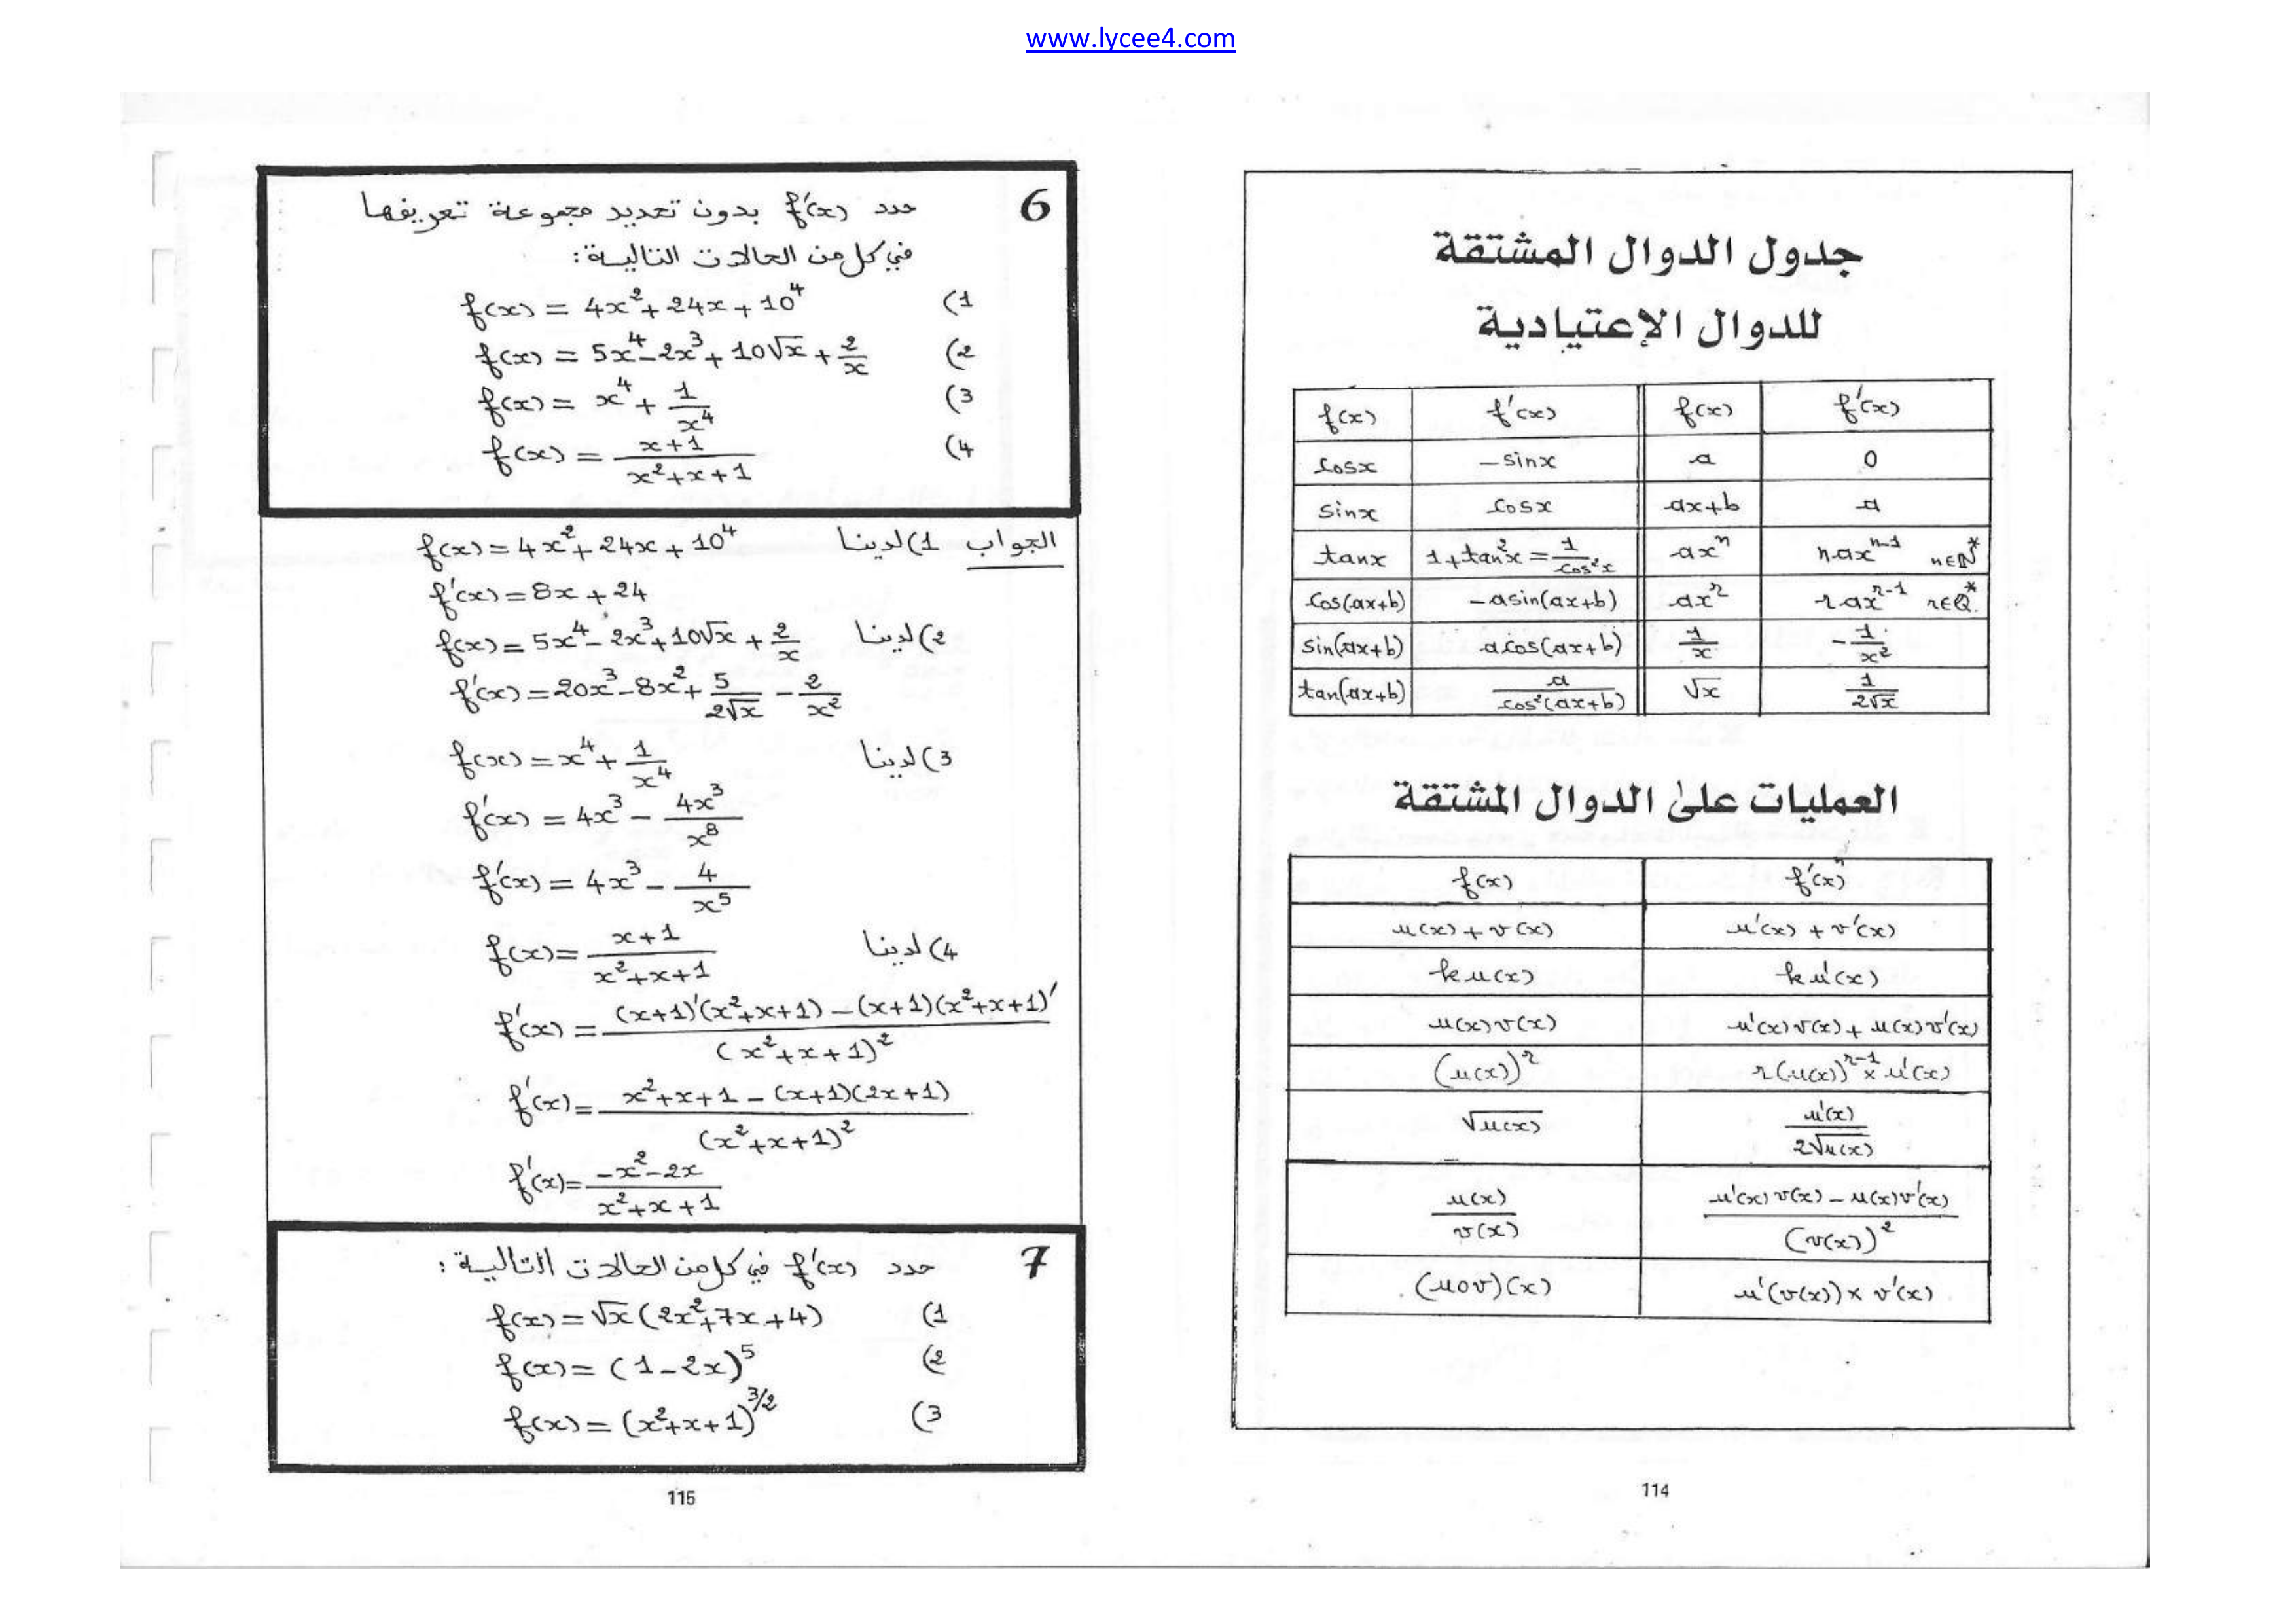 www.lycee4.com
جدول الدوال المشتقة
للدوال الإعتيادية
f(x) | f'(x) | f(x) | f'(x)
cosx | -sinx | a | 0
sinx | cosx | ax+b | a
tanx | 1+tan²x = 1/cos²x | axⁿ | n.axⁿ⁻¹ n∈ℕ*
cos(ax+b) | -asin(ax+b) | ax^r | r.ax^(r-1) r∈Q*
sin(ax+b) | acos(ax+b) | 1/x | -1/x²
tan(ax+b) | a/cos²(ax+b) | √x | 1/(2√x)
العمليات على الدوال المشتقة
f(x) | f'(x)
u(x)+v(x) | u'(x)+v'(x)
ku(x) | ku'(x)
u(x)v(x) | u'(x)v(x)+u(x)v'(x)
(u(x))^r | r(u(x))^(r-1) × u'(x)
√u(x) | u'(x)/(2√u(x))
u(x)/v(x) | (u'(x)v(x)-u(x)v'(x))/(v(x))²
(uov)(x) | u'(v(x))×v'(x)
114
6 حدد f'(x) بدون تحديد مجموعة تعريفها
في كل من الحالات التالية:
1) f(x) = 4x²+24x+10⁴
2) f(x) = 5x⁴-2x³+10√x+2/x
3) f(x) = x⁴+1/x⁴
4) f(x) = (x+1)/(x²+x+1)
الجواب 1) لدينا f(x)=4x²+24x+10⁴
f'(x)=8x+24
2) لدينا f(x)=5x⁴-2x³+10√x+2/x
f'(x)=20x³-8x²+5/(2√x)-2/x²
3) لدينا f(x)=x⁴+1/x⁴
f'(x)=4x³-4x³/x⁸
f'(x)=4x³-4/x⁵
4) لدينا f(x)=(x+1)/(x²+x+1)
f'(x)=((x+1)'(x²+x+1)-(x+1)(x²+x+1)')/(x²+x+1)²
f'(x)=(x²+x+1-(x+1)(2x+1))/(x²+x+1)²
f'(x)=(-x²-2x)/(x²+x+1)
7 حدد f'(x) في كل من الحالات التالية:
1) f(x)=√x(2x²+7x+4)
2) f(x)=(1-2x)⁵
3) f(x)=(x²+x+1)^(3/2)
115